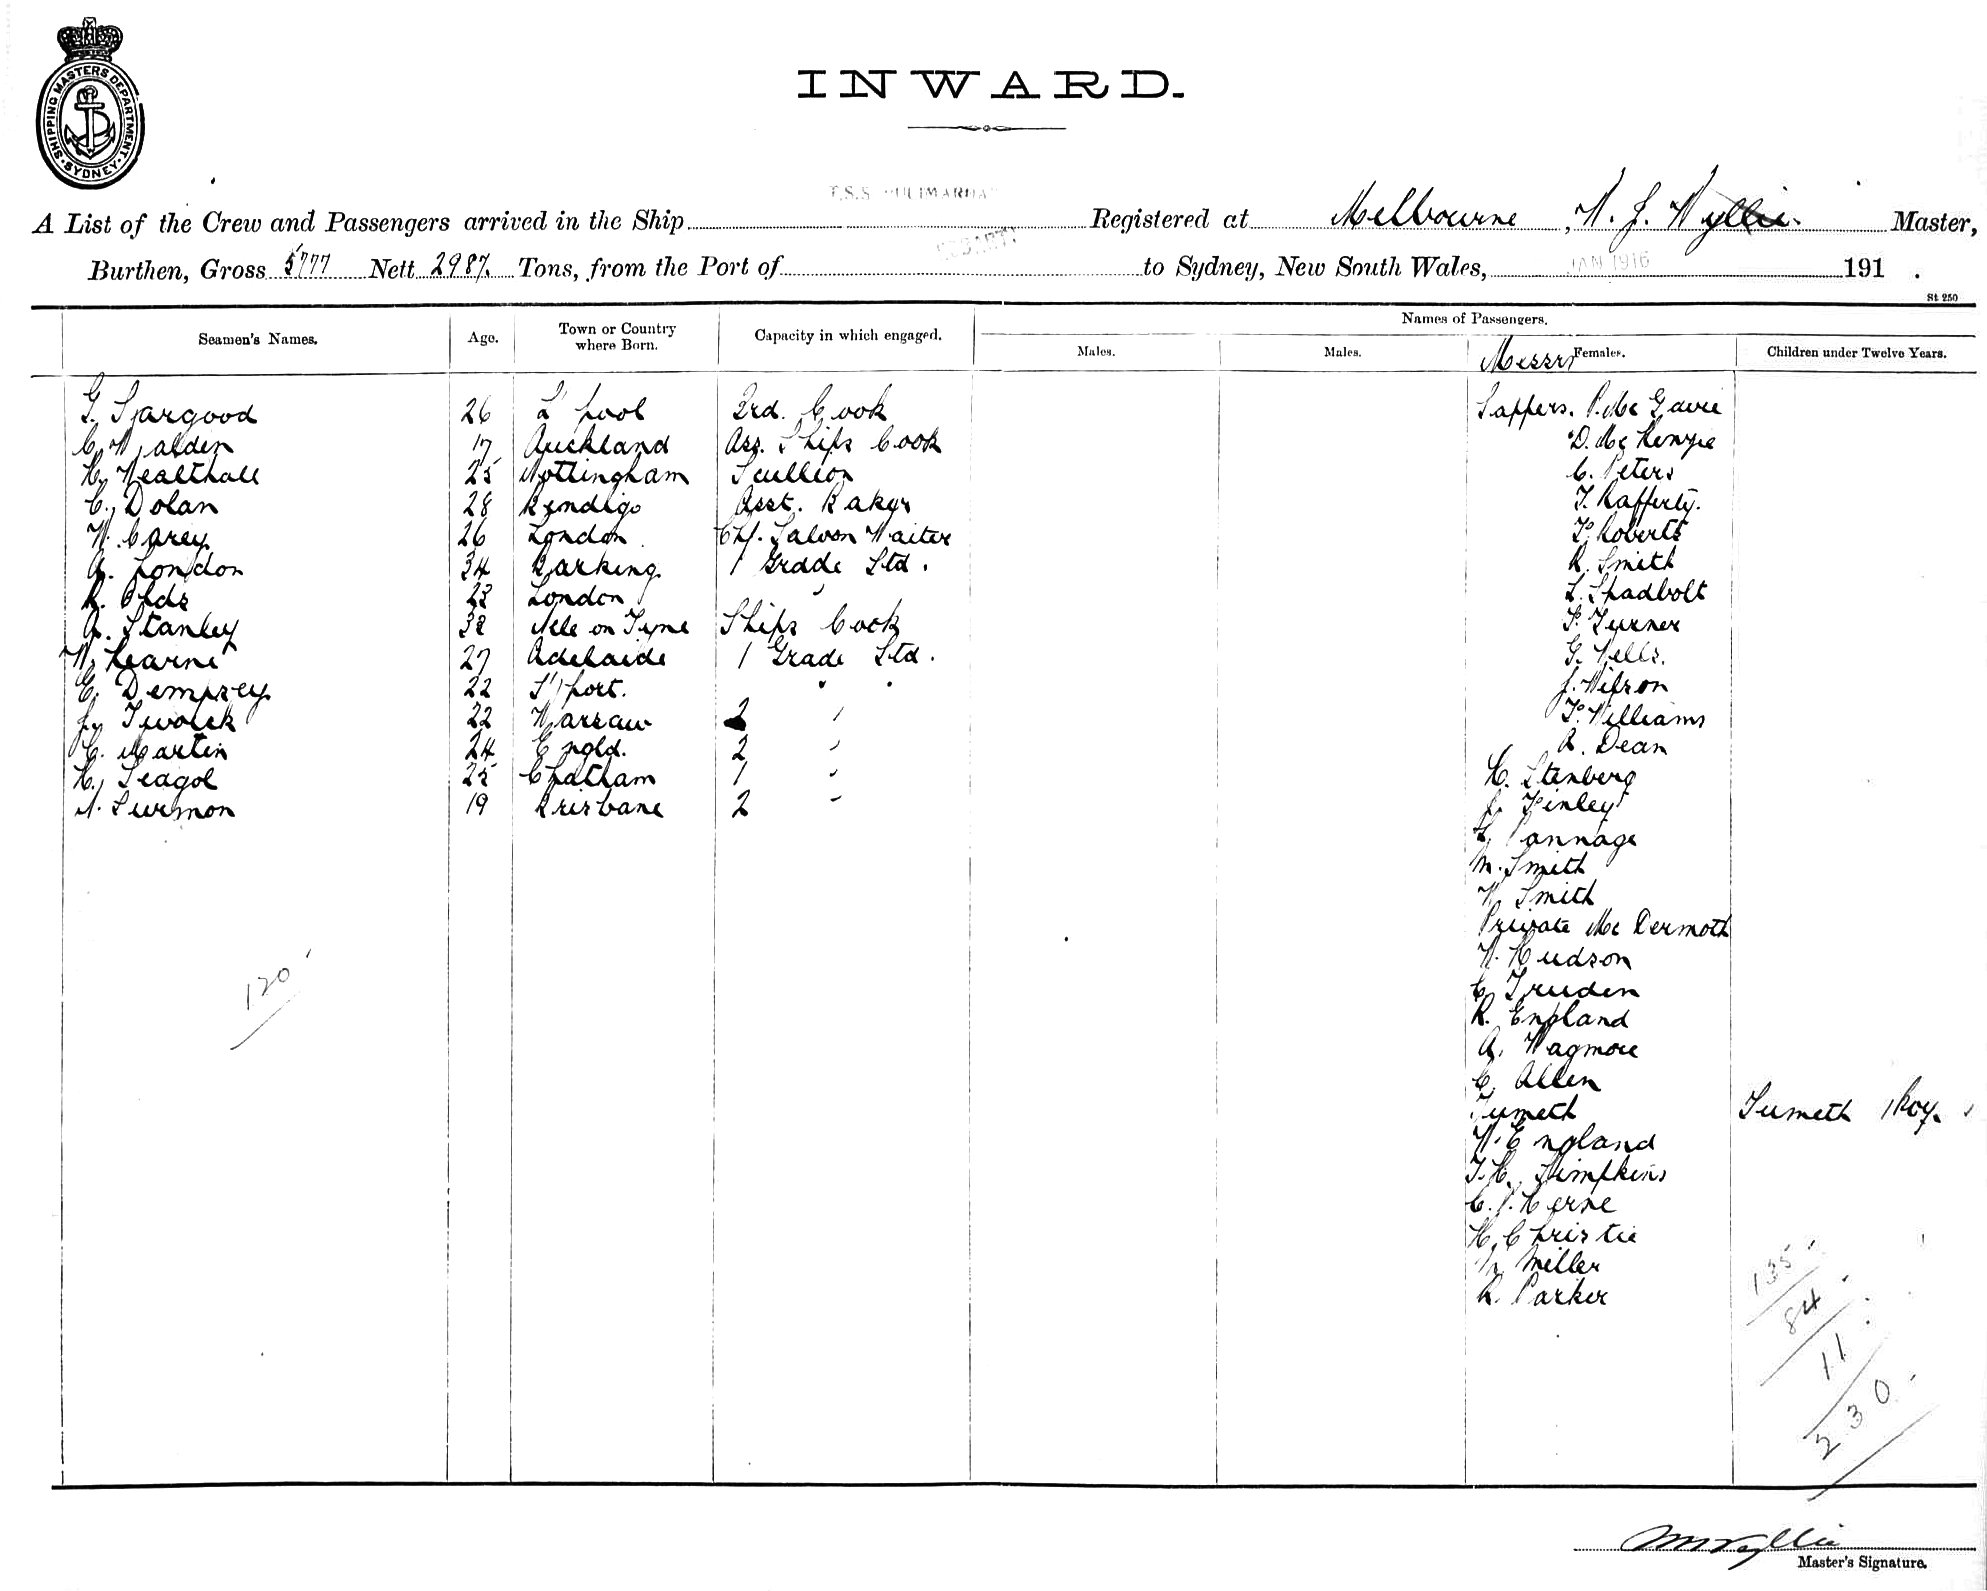 SHIPPING MASTERS DEPARTMENT · SYDNEY ·
INWARD.
T.S.S.
A List of the Crew and Passengers arrived in the Ship Registered at Melbourne, W. J. Wyllie. Master,
Burthen, Gross 5777 Nett 2987. Tons, from the Port of to Sydney, New South Wales, JAN 1916 191 .
St 250
Seamen's Names. Age. Town or Country where Born. Capacity in which engaged. Names of Passengers.
Males. Males. Females. Children under Twelve Years.
Messrs
G. Sargood 26 L'pool 3rd. Cook Sappers. P. Mc Gavie
C. Walden 17 Auckland Ass. Ships Cook D. Mc Kenzie
H. Wealthall 25 Nottingham Scullion C. Peters
C. Dolan 28 Bendigo Asst. Baker T. Rafferty.
W. Carey 26 London Chf. Saloon Waiter F. Roberts
A. London 34 Barking 1 Grade Std. R. Smith
R. Olds 23 London " L. Shadbolt
A. Stanley 38 Ncle on Tyne Ships Cook F. Turner
W. Kearne 27 Adelaide 1 Grade Std. G. Wells.
E. Dempsey 22 S'port. " " J. Wilson
22 Warsaw 2 " F. Williams
C. Martin 24 Engld. 2 " A. Dean
H. Seagol 25 Chatham 1 " H. Stenberg
Surmon 19 Brisbane 2 " J. Finley
Pannage
M. Smith
W. Smith
Private Mc Dermoth
W. Hudson
C. Truden
R. England
A. Wagmore
C. Allen
Tumeth Tumeth 1 Boy.
W. England
T. H. Simpkins
C. P. Herne
H. Christie
Miller
R. Parker
120
135
84
11
230
Wyllie
Master's Signature.